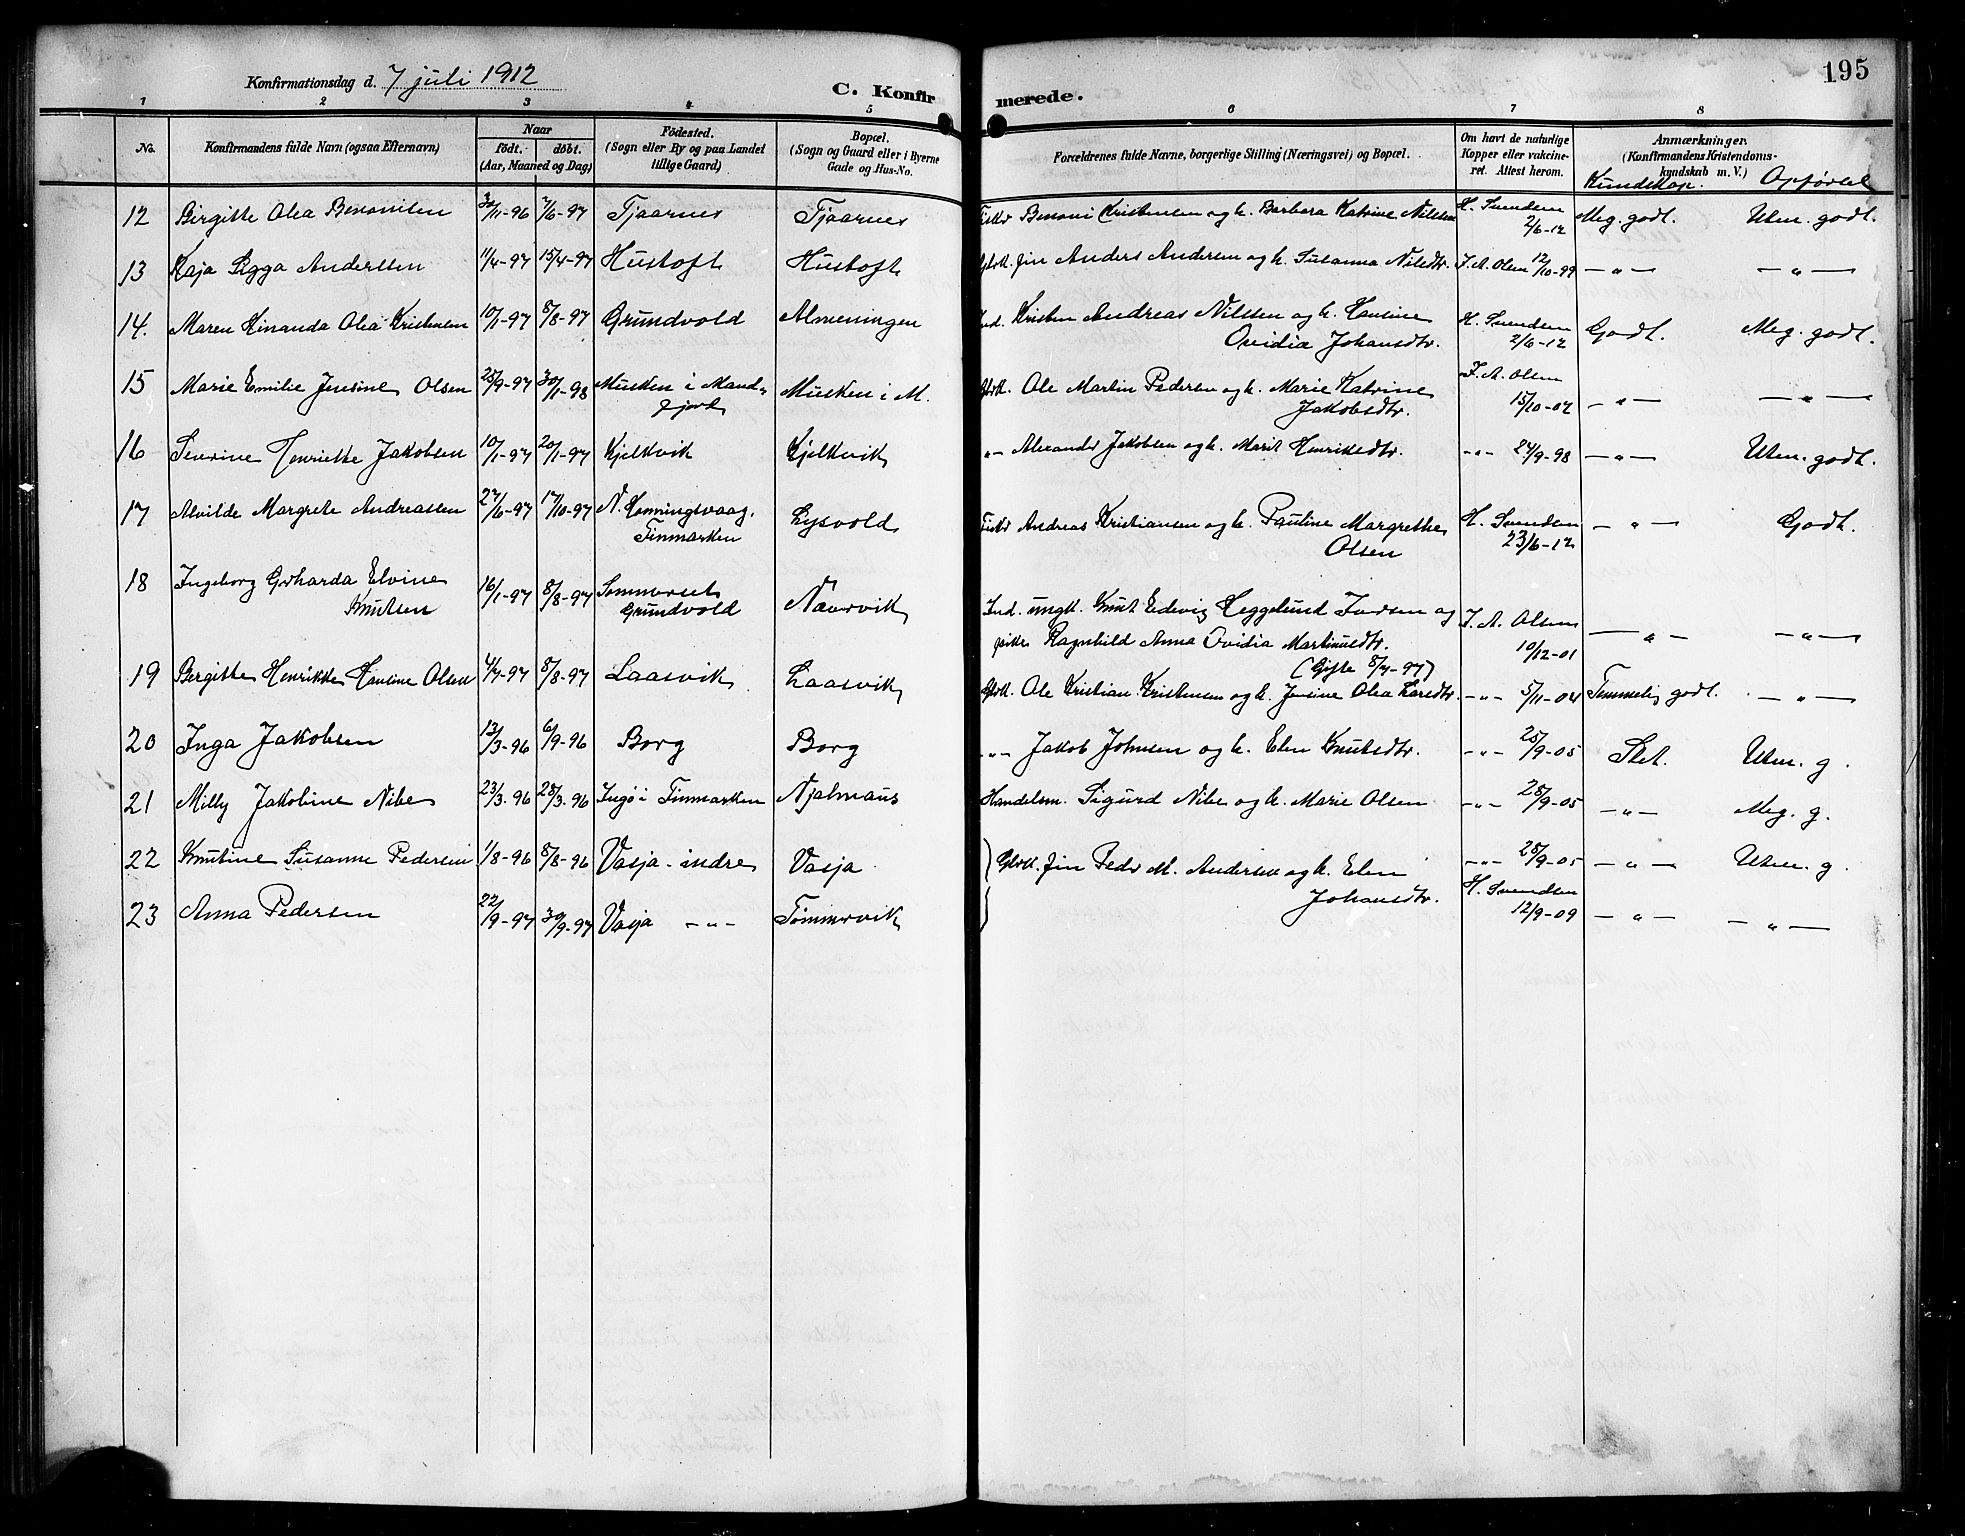 195
Konfirmationsdag d. 7 juli 1912
C. Konfirmerede.
1 2 3 4 5 6 7 8
No.
Konfirmandens fulde Navn (ogsaa Efternavn)
Naar
født. døbt.
(Aar, Maaned og Dag)
Födested.
(Sogn eller By og paa Landet tillige Gaard)
Bopæl.
(Sogn og Gaard eller i Byerne Gade og Hus-No.
Forældrenes fulde Navne, borgerlige Stilling (Næringsvei) og Bopæl.
Om havt de naturlige Kopper eller vakcineret. Attest herom.
Anmærkninger.
(Konfirmandens Kristendomskyndskab m. V.)
Kundskap. Opførsel
12 Birgitte Olea Benonisen 30/11-96 7/6-97 Tjaarnes Tjaarnes Fisker Benoni Kristensen og h. Barbara Katrine Nilsen H. Svendsen 2/6-12 Meg. godt. Utm. godt.
13 Kaja Sigga Anderssen 11/4-97 15/4-97 Hustoft Hustoft Gbrk. fin Anders Andersen og h. Susanna Nilsdtr. J. A. Olsen 12/10-99 -"- -"-
14. Maren Hinanda Olea Kristensen 10/1-97 8/8-97 Grundvold Almeningen Ind. Kristen Andreas Nilssen og h. Hansine
Ovidia Johansdtr. H. Svendsen 2/6-12 Godt. Meg. godt.
15 Marie Emilie Jensine Olsen 28/9-97 30/1-98 Musken i Mand-
fjord Musken i M. Gbrk. Ole Martin Pedersen og h. Marie Katrine
Jakobsdtr. J. A. Olsen 15/10-07 -"- -"-
16 Severine Henriette Jakobsen 10/1-97 20/1-97 Kjelkvik Kjelkvik "- Alexander Jakobsen og h. Marit Henriksdtr. -"- 24/9-98 -"- Utm. godt.
17 Alvilde Margrete Andreassen 27/6-97 17/10-97 N. Honningsvaag,
Finmarken Lysvold Fisker Andreas Kristiansen og h. Pauline Margrethe
Olsen H. Svendsen 23/6-12 -"- Godt.
18 Ingeborg Gerharda Elvine
Knutsen 16/1-97 8/8-97 Sommerset
Grundvold Naervik Ind. ungk. Knut Edevig Heggelund Iversen og
pike Ragnhild Anna Ovidia Martinusdtr.
(Gifte 8/7-97) J. A. Olsen 10/12-01 -"- -"-
19 Bergitte Henrikke Hansine Olsen 4/7-97 8/8-97 Laasvik Laasvik Gbrk. Ole Kristian Kristensen og h. Jensine Olea Larsdtr. -"- 5/11-04 Temmelig godt. -"-
20 Inga Jakobsen 13/3-96 6/9-96 Borg Borg -"- Jakob Johnsen og h. Elen Knutsdtr. -"- 28/9-05 Slet. Utm. g.
21 Milly Jakobine Nibe 23/3-96 28/3-96 Ingø i Finmarken Njalmaus Handelsm. Sigurd Nibe og h. Marie Olsen -"- 28/9-05 -"- Meg. g.
22 Knutine Susanne Pedersen 1/8-96 8/8-96 Vasja-indre Vasja Gbrk. fin Peder M. Andersen og h. Elen
Johansdtr. -"- 28/9-05 -"- Utm. g.
23 Anna Pedersen 22/9-97 30/9-97 Vasja -"- Tømmervik H. Svendsen 12/9-09 -"- -"-